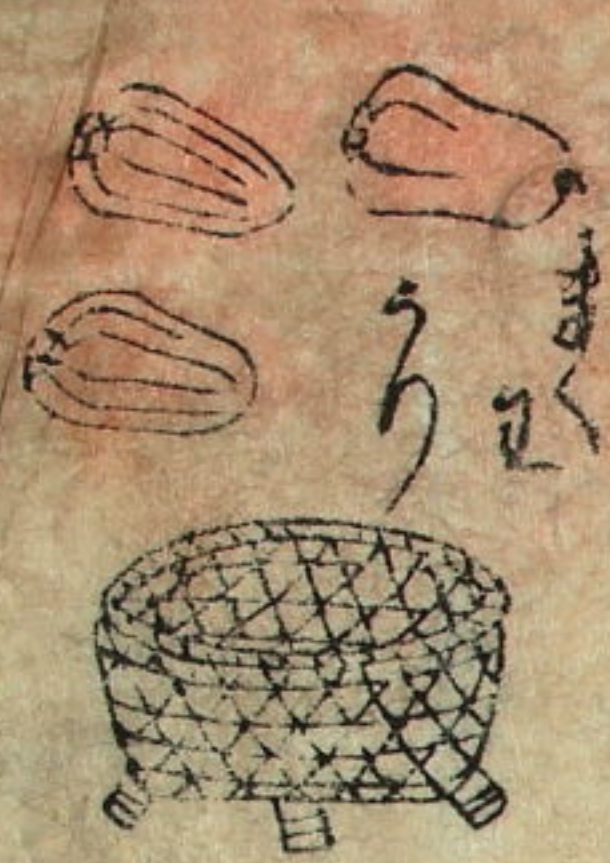 まくわ
うり